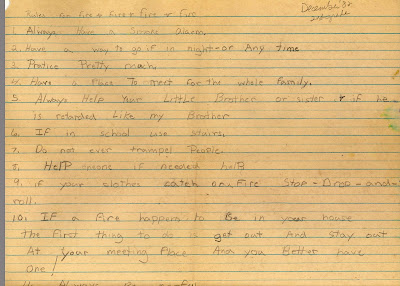 Rules for Fire + Fire + Fire + Fire
December 3rd
2nd grade
1. Always Have a Smoke Alarm.
2. Have a way to go if in night - or Any time
3. Pratice Pretty much.
4. Have a Place To meet for the whole family.
5. Always Help Your Little Brother or sister + if he
is retarded Like my Brother
6. If in school use stairs.
7. Do not ever trampel People.
8. Help someone if needed help
9. if your clothes catch on Fire Stop-Drop-and-
roll.
10. IF a fire happens to Be in your house
the first thing to do is get out And stay out
At your meeting Place And you Better have
one!
Always Be